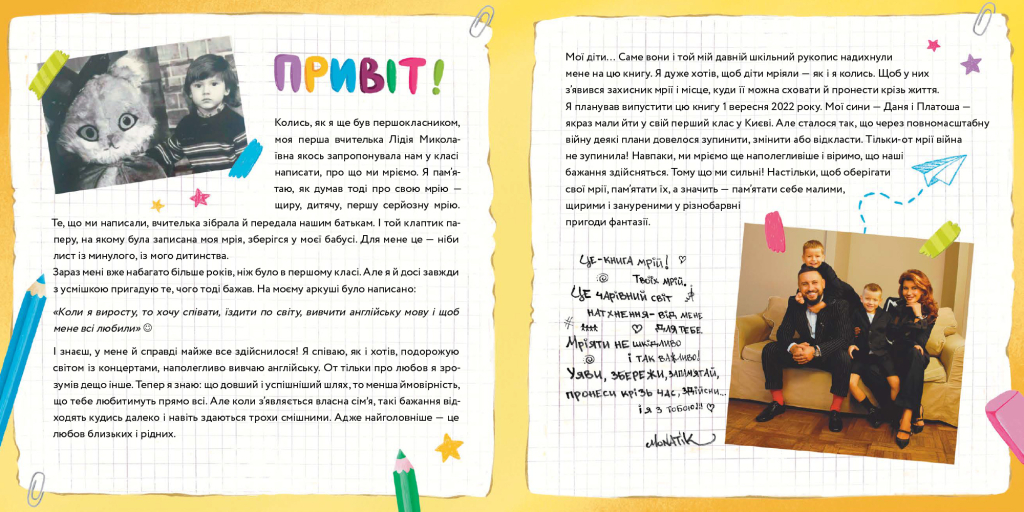 ПРИВІТ!
Колись, як я ще був першокласником,
моя перша вчителька Лідія Микола-
ївна якось запропонувала нам у класі
написати, про що ми мріємо. Я пам’я-
таю, як думав тоді про свою мрію —
щиру, дитячу, першу серйозну мрію.
Те, що ми написали, вчителька зібрала й передала нашим батькам. І той клаптик па-
перу, на якому була записана моя мрія, зберігся у моєї бабусі. Для мене це — ніби
лист із минулого, із мого дитинства.
Зараз мені вже набагато більше років, ніж було в першому класі. Але я й досі завжди
з усмішкою пригадую те, чого тоді бажав. На моєму аркуші було написано:
«Коли я виросту, то хочу співати, їздити по світу, вивчити англійську мову і щоб
мене всі любили» ☺
І знаєш, у мене й справді майже все здійснилося! Я співаю, як і хотів, подорожую
світом із концертами, наполегливо вивчаю англійську. От тільки про любов я зро-
зумів дещо інше. Тепер я знаю: що довший і успішніший шлях, то менша ймовірність,
що тебе любитимуть прямо всі. Але коли з’являється власна сім’я, такі бажання від-
ходять кудись далеко і навіть здаються трохи смішними. Адже найголовніше — це
любов близьких і рідних.
Мої діти... Саме вони і той мій давній шкільний рукопис надихнули
мене на цю книгу. Я дуже хотів, щоб діти мріяли — як і я колись. Щоб у них
з’явився захисник мрії і місце, куди її можна сховати й пронести крізь життя.
Я планував випустити цю книгу 1 вересня 2022 року. Мої сини — Даня і Платоша —
якраз мали йти у свій перший клас у Києві. Але сталося так, що через повномасштабну
війну деякі плани довелося зупинити, змінити або відкласти. Тільки-от мрії війна
не зупинила! Навпаки, ми мріємо ще наполегливіше і віримо, що наші
бажання здійсняться. Тому що ми сильні! Настільки, щоб оберігати
свої мрії, пам’ятати їх, а значить — пам’ятати себе малими,
щирими і зануреними у різнобарвні
пригоди фантазії.
ЦЕ-КНИГА МРІЙ!
ТВОЇХ МРІЙ.
ЦЕ ЧАРІВНИЙ СВІТ
НАТХНЕННЯ- ВІД МЕНЕ
ДЛЯ ТЕБЕ.
МРІЯТИ НЕ ШКІДЛИВО
І ТАК ВАЖЛИВО!
УЯВИ, ЗБЕРЕЖИ, ЗАПАМ'ЯТАЙ,
ПРОНЕСИ КРІЗЬ ЧАС, ЗДІЙСНИ...
І Я З ТОБОЮ!!!
MONATIK